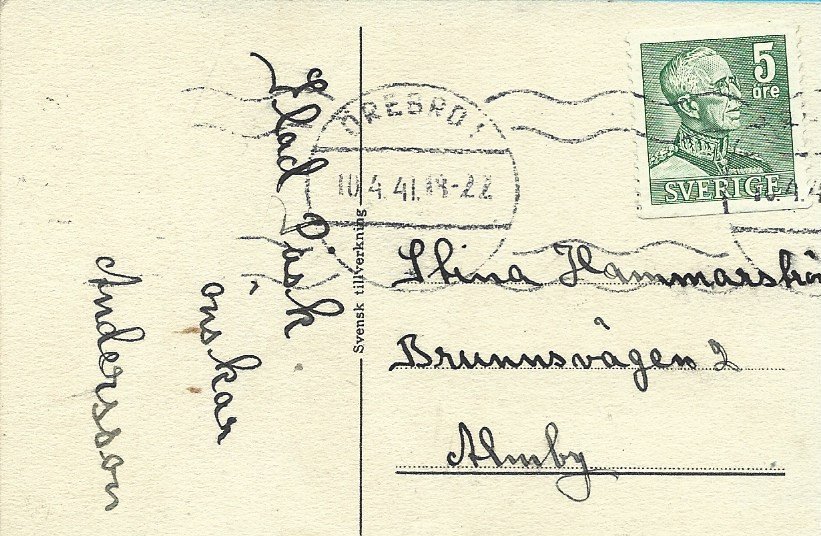 Glad Påsk
önskar
Andersson
Svensk tillverkning
ÖREBRO 1
10.4.41. 18-22
5
öre
SVERIGE
10.4.4
Stina Hammarströ
Brunnsvägen 2
Almby